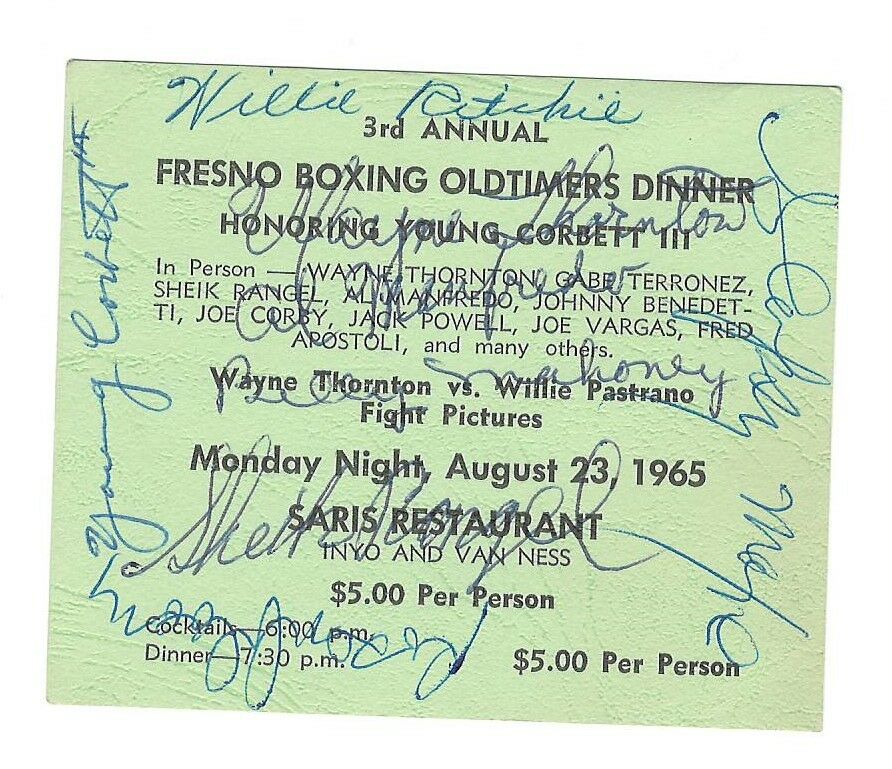 Willie Ritchie
3rd ANNUAL
FRESNO BOXING OLDTIMERS DINNER
Wayne Thornton
HONORING YOUNG CORBETT III
Al Manfredo
In Person — WAYNE THORNTON, GABE TERRONEZ,
SHEIK RANGEL, AL MANFREDO, JOHNNY BENEDET-
TI, JOE CORBY, JACK POWELL, JOE VARGAS, FRED
APOSTOLI, and many others.
Billy Mahoney
Wayne Thornton vs. Willie Pastrano
Fight Pictures
Monday Night, August 23, 1965
Sheik Rangel
SARIS RESTAURANT
INYO AND VAN NESS
$5.00 Per Person
Cocktails—6:00 p.m.
Dinner—7:30 p.m.
$5.00 Per Person
Young Corbett III